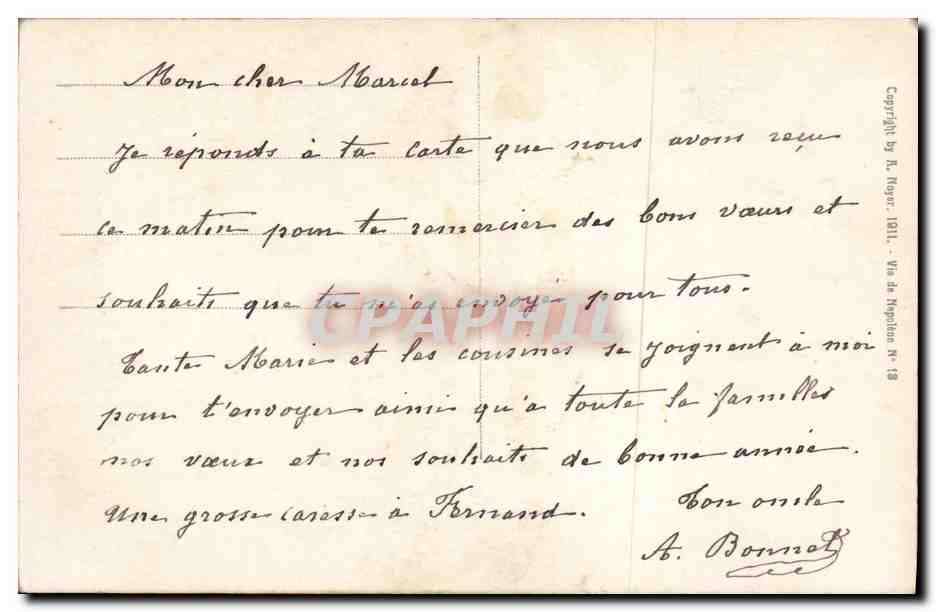 Mon cher Marcel
Je réponds à ta carte que nous avons reçu
ce matin pour te remercier des bons vœux et
souhaits que tu m'as envoyé pour tous.
Tante Marie et les cousines se joignent à moi
pour t'envoyer ainsi qu'à toute la familles
nos vœux et nos souhaits de bonne année.
Une grosse caresse à Fernand. Ton oncle
A. Bonnet
Copyright by A. Noyer. 1911. - Vie de Napoléon N° 18
CPAPHIL